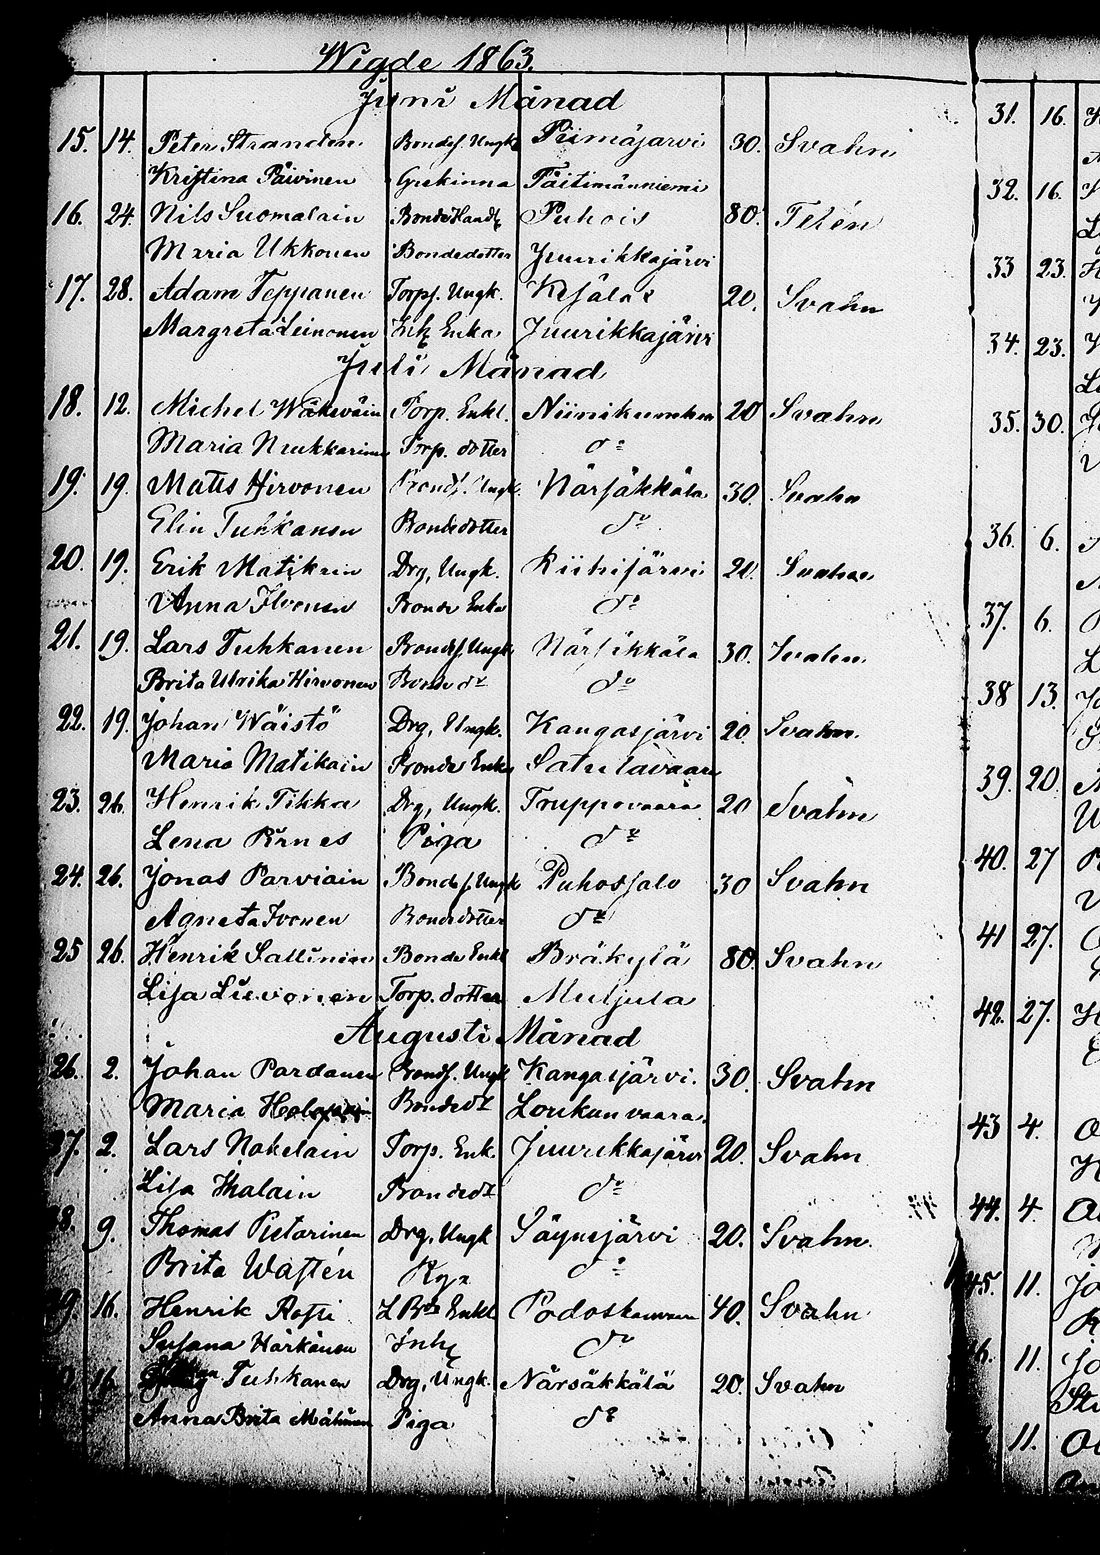 Wigde 1863.
Juni Månad
15. 14. Peter Strandén Bondes. Ungk Piimäjarvi 30. Svahn
Kristina Päivinen Grekinna Päitimänniemi
16. 24. Nils Suomalain Bonde Puhois 80. Telén
Maria Ukkonen Bondedotter Juurikkajärvi
17. 28. Adam Teppanen Torps. Ungk. Kesälax 20. Svahn
Margreta Leinonen Enka Juurikkajärvi
Juli Månad
18. 12. Michel Wäkeväin Torp. Enkl. Niinikumhu 20 Svahn
Maria Nuukkarinen Torp. dotter do
19. 19. Matts Hirvonen Bondes. Ungk. Närsäkkälä 30. Svahn
Elin Tuhkanen Bondedotter do
20. 19. Erik Matikain Drg, Ungk. Riihijärvi 20. Svahn
Anna Ilvonen Bonde Enka do
21. 19. Lars Tuhkanen Bondes. Ungk Närsäkkälä 30. Svahn
Brita Ulrika Hirvonen Bonde dr do
22. 19. Johan Wäistö Drg, Ungk. Kangasjärvi 20. Svahn
Maria Matikain Bonde Enka Satulavaara
23. 26. Henrik Tikka Drg, Ungk. Truppovaara 20 Svahn
Lena Pirnes Piga do
24. 26. Jonas Parviain Bondes. Ungk Puhossalo 30 Svahn
Agneta Ivonen Bondedotter do
25 26. Henrik Sallinen Bonde Enkl Bräkylä 80. Svahn
Lisa Lievonen Torp. dotter Muljula
Augusti Månad
26. 2. Johan Pardanen Bondes. Ungk Kangasjärvi. 30. Svahn
Maria Bondedr Loukunvaara
27. 2. Lars Nokelain Torp. Enk. Juurikkajärvi 20. Svahn
Lisa Ihalain Bondedr do
8. 9. Thomas Pietarinen Drg, Ungk Säynejärvi 20. Svahn
Brita Wastén do
9. 16. Henrik Rossi Enkl Podoskavaara 40. Svahn
Susana Härkänen Inh do
16 Tuhkanen Drg, Ungk. Närsäkkälä 20. Svahn
Anna Brita Mälinen Piga do
31. 16.
32. 16.
33 23.
34. 23.
35. 30.
36. 6.
37. 6.
38 13.
39. 20.
40. 27
41 27.
42. 27.
43 4.
44. 4
45. 11.
46. 11.
11.